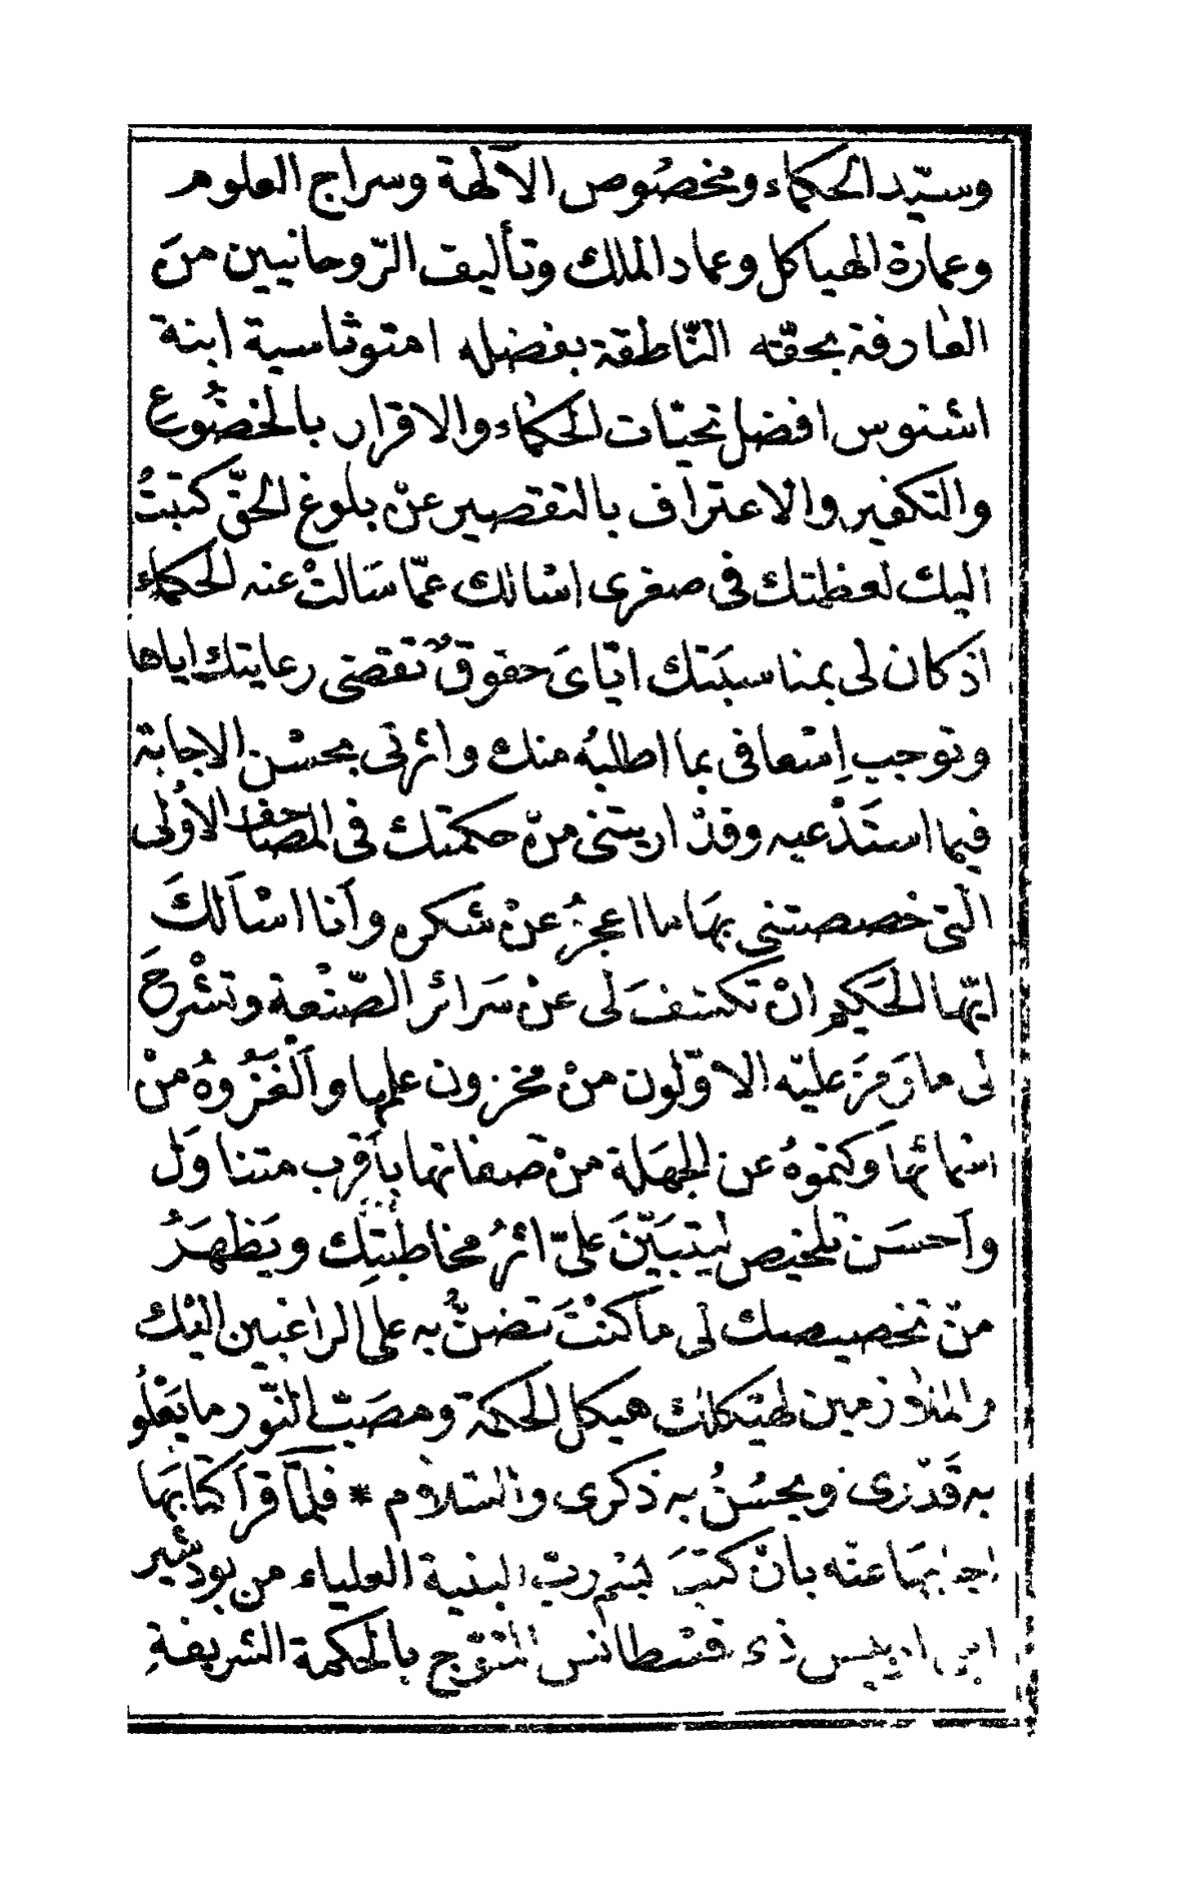 وسيّد الحكماء ومخصُوص الآلهة وسراج العلوم
وعمارة الهياكل وعماد الملك وتأليف الرّوحانيين منَ
العارفة بحقّه النّاطقة بفضله امتوثاسية ابنة
اشنوس افضل تحيّات الحكماء والاقرار بالخضُوعِ
والتكفير والاعتراف بالتقصير عنْ بلوغ الحقّ كتبتُ
اليك لعظمتك فى صغرى اسْالك عمّا سَالتْ عنه الحكماء
اذ كان لى بمناسبَتك ايّاىَ حقوقٌ تقضى رعايتك اياها
وتوجب اِسْعافى بما اطلبُه منك واثرتى بحسْن الاجابة
فيما استَدْعيه وقدْ اريتنى منْ حكمتك فى المصَاحف الاُولى
التى خصصتنى بهَا ما اعجزُ عنْ شكره وأنا اسْألكَ
ايّها الحَكيم انْ تكشفَ لى عنْ سَرائر الصّنْعة وتشْرحَ
لى ما رَمَزَ عليْه الاوّلون منْ مخزون علمها وألْغَزُوهُ منْ
اسْمائها وَكتموهُ عن الجهَلة منْ صفاتها بأقرب متناوَل
وأحسَن تلخيص ليتبَيّنَ علىّ اثرُ مخاطبتِك ويَظهَرُ
منْ تخصيصك لى ما كنْتَ تضنُّ به على الراغبين اليْك
والملازمين لهيْكلك هيكل الحكمة ومصَبّ النّور ما يَعْلُو
به قَدْرى ويحسُنُ به ذكرى والسّلام * فلمّا قرأ كتابهَا
اجابهَا عنْه بانْ كتبَ بسْم ربّ البنية العلياء من بودشير
ابن ... ذى قسْطانس المتوّج بالحكمة الشريفةِ